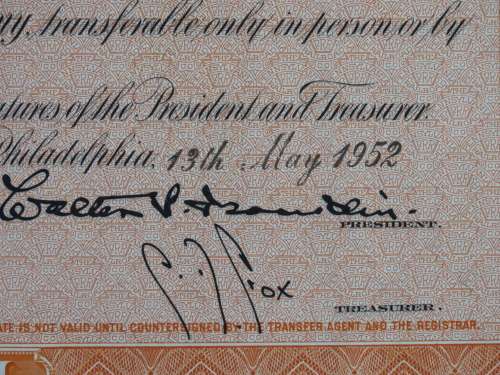 ny, transferable only in person or by
atures of the President and Treasurer.
Philadelphia, 13th May 1952
Walter S. Franklin
PRESIDENT.
Fox
TREASURER.
ATE IS NOT VALID UNTIL COUNTERSIGNED BY THE TRANSFER AGENT AND THE REGISTRAR.